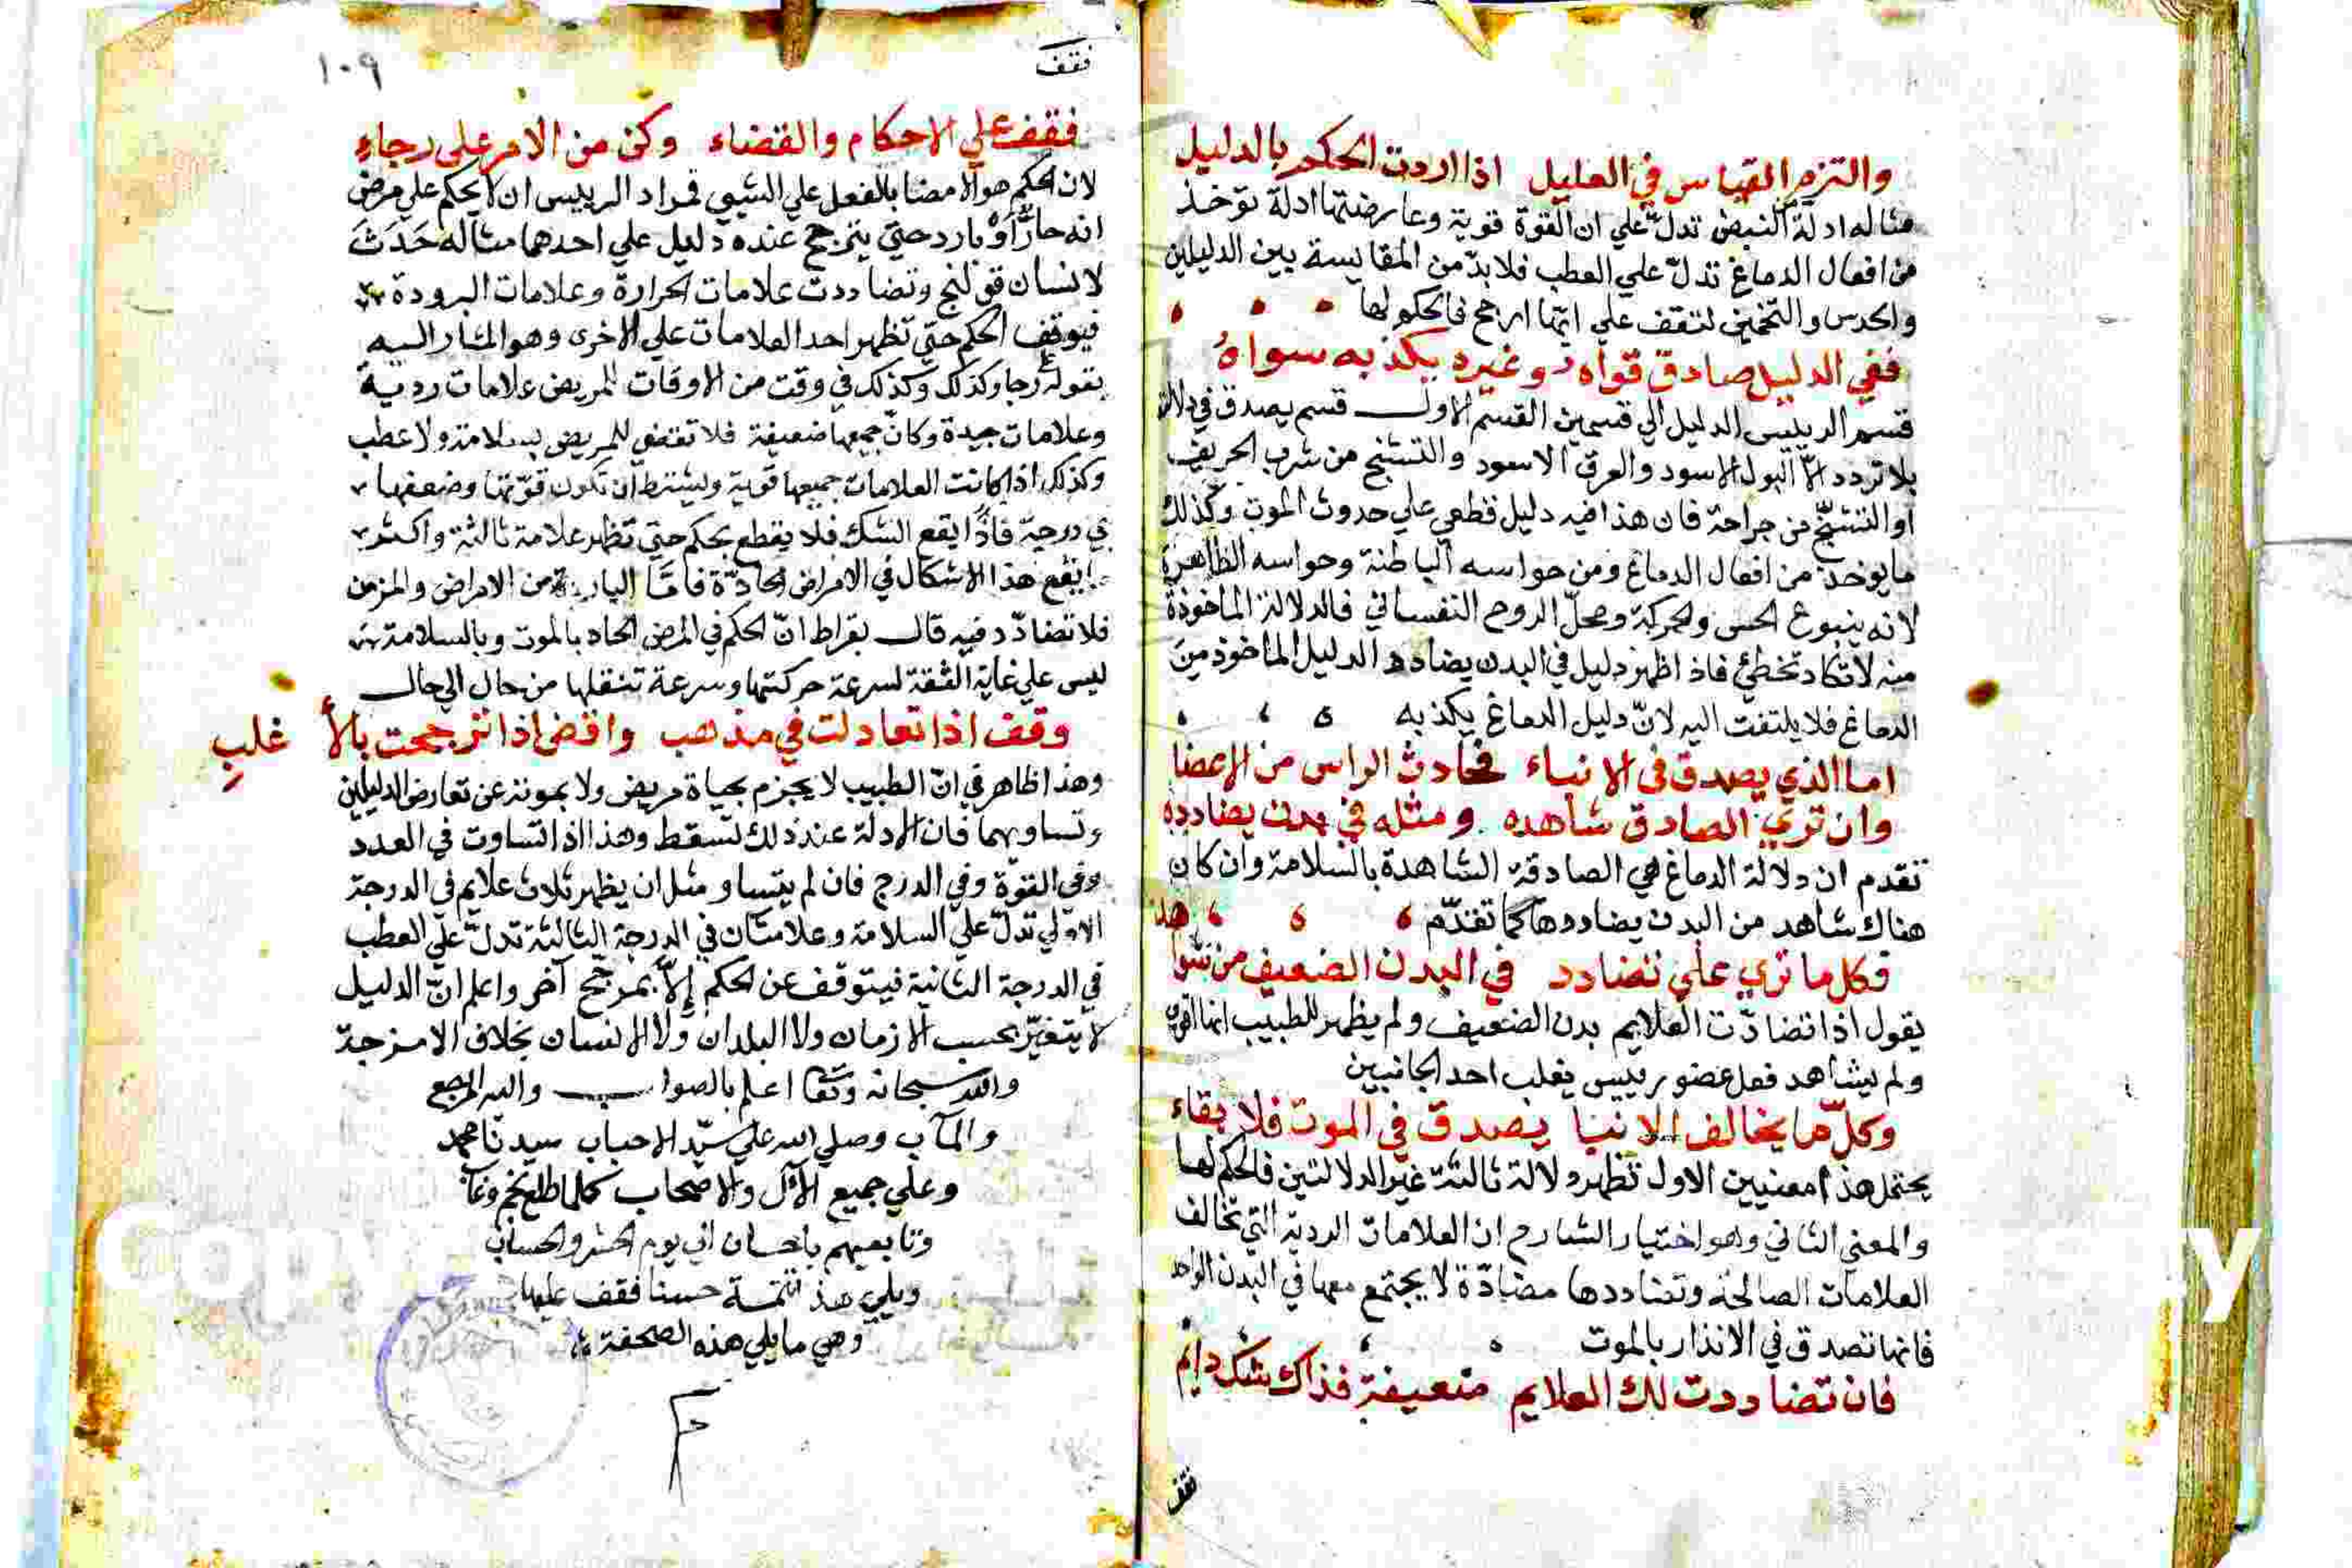 والتزم القياس في العليل اذا اردت الحكم بالدليل
مثاله ادلة النبض تدلّ علي ان القوة قوية وعارضتها ادلة توخذ
من افعال الدماغ تدلّ علي العطب فلا بدّ من المقايسة بين الدليلين
والحدس والتخمين لتقف علي ايّها ارجح فالحكم لها
ففي الدليل صادق قواه وغيره يكذبه سواهُ
قسم الرييس الدليل الي قسمين القسم الاول قسم يصدق في دلالته
بلا تردد الّا البول الاسود والعرق الاسود والتشنج من شرب الخريف
او التشنّج من جراحة فان هذا فيه دليل قطعي علي حدوث الموت وكذلك
ما يوخذ من افعال الدماغ ومن حواسه الباطنة وحواسه الظاهرة
لانه ينبوع الحس والحركة ومحلّ الروح النفساني فالدلالة الماخوذة
منه لا تكاد تخطئ فاذا ظهر دليل في البدن يضادد الدليل الماخوذ من
الدماغ فلا يلتفت اليه لانّ دليل الدماغ يكذبه
اما الذي يصدق في الانباء فحادث الراس من الاعضا
وان تري الصادق شاهده ومثله في بدن يضادده
تقدم ان دلالة الدماغ هي الصادقة الشاهدة بالسلامة وان كان
هناك شاهد من البدن يضاددها كما تقدّم
فكل ما تري علي تضادد في البدن الضعيف من
يقول اذا تضادّت العلايم بدن الضعيف ولم يظهر للطبيب ايها اقوي
ولم يشاهد فعل عضو رييس يغلب احد الجانبين
وكلّ ما يخالف الانبيا يصدق في الموت فلا بقاء
يحتمل هذا معنيين الاول تظهر دلالة ثالثة غير الدلالتين فالحكم لها
والمعني الثاني وهو اختيار الشارح ان العلامات الردية التي تخالف
العلامات الصالحة وتضاددها مضادّة لا يجتمع معها في البدن الواحد
فانها تصدق في الانذار بالموت
فان تضاددت لك العلايم ضعيفة فذاك شك دايم
فقف
فقف
١٠٩
فقف علي الاحكام والقضاء وكن من الامر علي رجاءِ
لان الحكم هو الامضا بالفعل علي الشيي فمراد الرييس ان لا يحكم علي مرض
انه حارّ أَوْ بارد حتي يترجح عنده دليل علي احدهما مثاله حَدَثَ
لانسان قولنج وتضاددت علامات الحرارة وعلامات البرودة
فيوقف الحكم حتي تظهر احد العلامات علي الاخرى وهو المشار اليه
بقوله علي رجا وكذلك وكذلك في وقت من الاوقات للمريض علامات ردية
وعلامات جيدة وكانّ جميعها ضعيفة فلا تقضي للمريض بسلامة ولا عطب
وكذلك اذا كانت العلامات جميعها قوية ويشترط ان تكون قوّتها وضعفها
في درجة فاذًا يقع الشك فلا يقطع بحكم حتي تظهر علامة ثالثة واكثر
يقع هذا الاشكال في الامراض الحادّة فامّا الباردة من الامراض والمزمن
فلا تضادّد فيه قال بقراط انّ الحكم في المرض الحاد بالموت وبالسلامة
ليس علي غاية الثقة لسرعة حركتها وسرعة تنقلها من حال الي حال
وقف اذا تعادلت في مذهب واقض اذا ترجحت بالأغلبِ
وهذا ظاهر في انّ الطبيب لا يجزم بحياة مريض ولا بموته عن تعارض الدليلين
وتساويهما فان الادلة عند ذلك تسقط وهذا اذا تساوت في العدد
وفي القوّة وفي الدرج فان لم يتساو مثل ان يظهر ثلاث علايم في الدرجة
الاولي تدلّ علي السلامة وعلامتان في الدرجة الثالثة تدلّ علي العطب
في الدرجة الثانية فيتوقف عن الحكم إلّا بمرجّح آخر واعلم انّ الدليل
لا يتغيّر بحسب الازمان ولا البلدان ولا الانسان بخلاف الامزجة
والله سبحانه وتعا اعلم بالصواب واليه المرجع
والمآب وصلي الله علي سيّد الاحباب سيدنا محمد
وعلي جميع الآل والاصحاب كلما طلع نجم وغاب
وتابعيهم باحسان الي يوم الحشر والحساب
ويلي هذا تتمة حسنا فقف عليها
وهي ما يلي هذه الصحفة
Copy
y